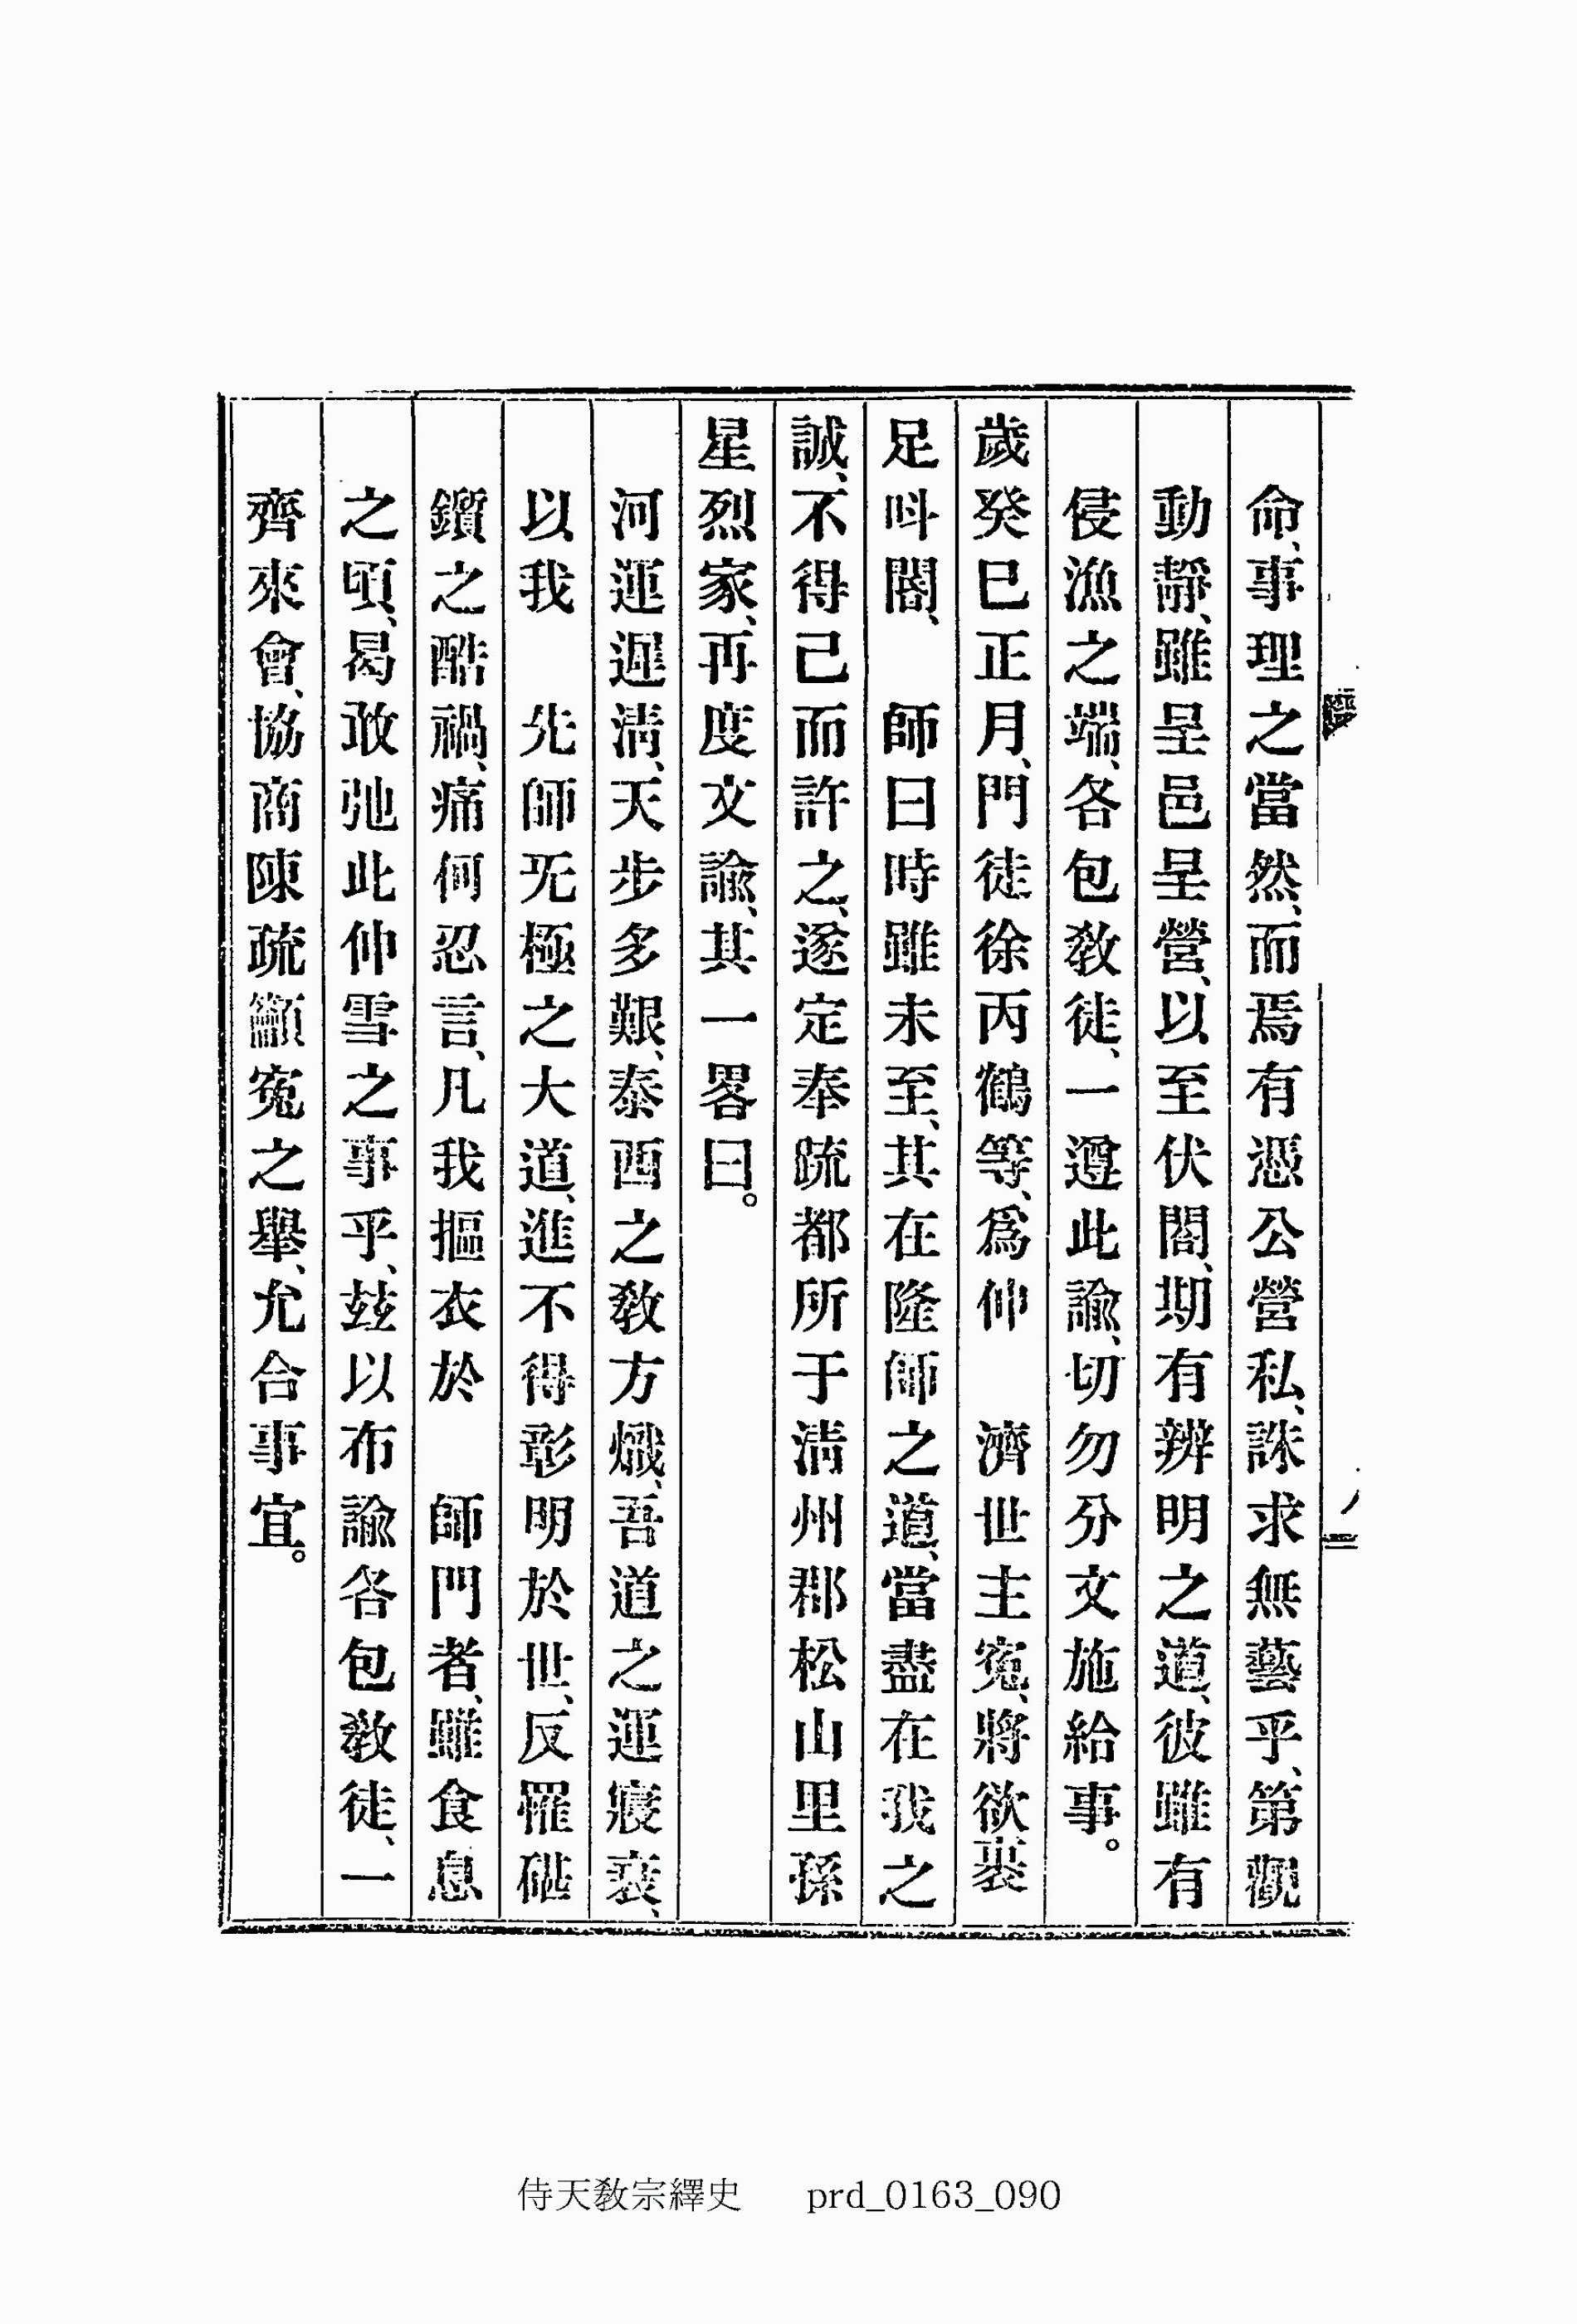 命、事理之當然、而焉有憑公營私、誅求無藝乎、第觀
動靜、雖呈邑呈營、以至伏閤、期有辨明之道、彼雖有
侵漁之端、各包教徒、一遵此諭、切勿分文施給事。
歲癸巳正月、門徒徐丙鶴等、爲伸　濟世主寃、將欲裹
足叫閤、　師曰時雖未至、其在隆師之道、當盡在我之
誠、不得已而許之、遂定奉疏都所于淸州郡松山里孫
星烈家、再度文諭、其一畧曰。
河運遲淸、天步多艱、泰酉之教方熾、吾道之運寢衰、
以我　先師无極之大道、進不得彰明於世、反罹砧
鑕之酷禍、痛何忍言、凡我摳衣於　師門者、雖食息
之頃、曷敢弛此伸雪之事乎、玆以布諭各包教徒、一
齊來會、協商陳疏籲寃之擧、允合事宜。
侍天敎宗繹史　prd_0163_090